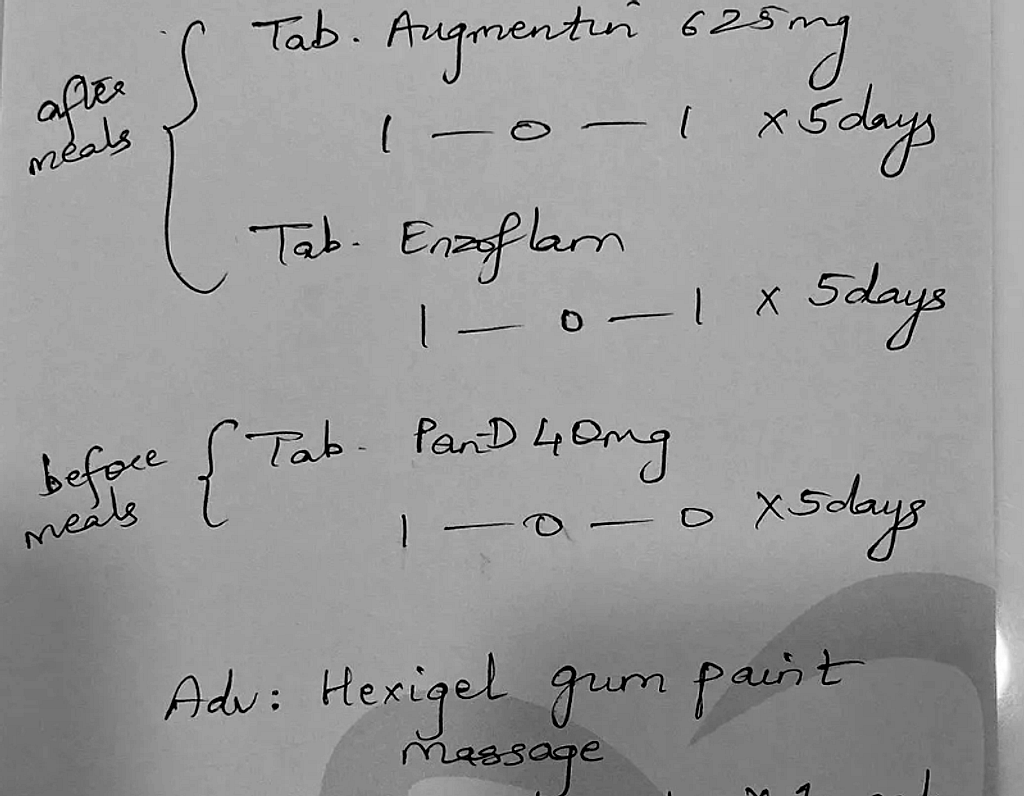 Tab. Augmentin 625mg
after meals
1 — 0 — 1 x 5days
Tab. Enzoflam
1 — 0 — 1 x 5days
before meals
Tab. Pan-D 40mg
1 — 0 — 0 x 5days
Adv: Hexigel gum paint
massage